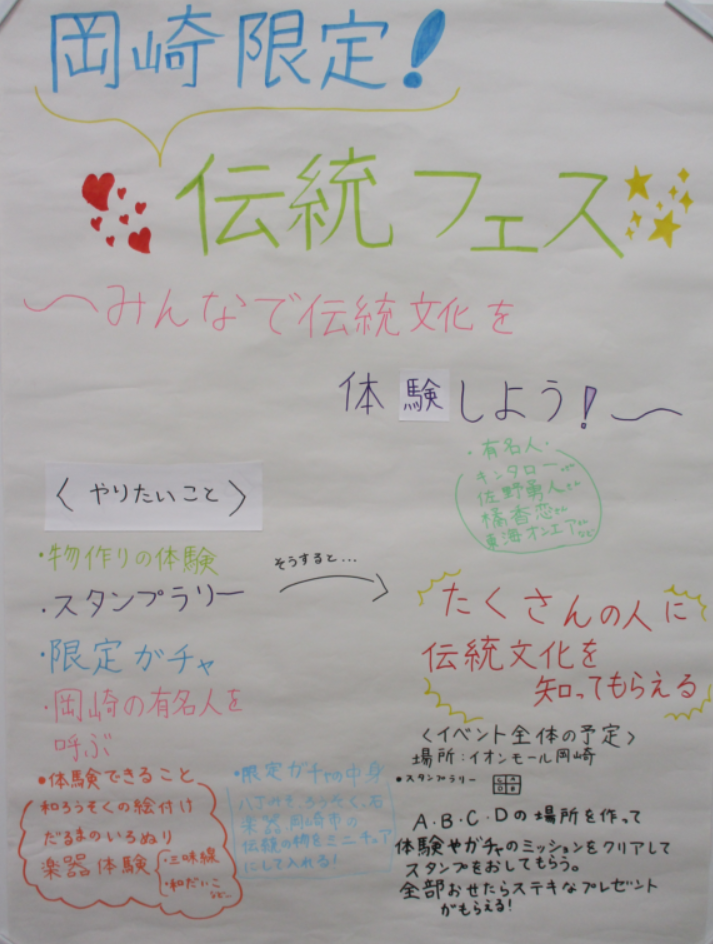 岡崎限定!
伝統フェス
〜みんなで伝統文化を
体験しよう!〜
・有名人・
キンタロー。さん
佐野勇人さん
橘香恋さん
東海オンエアさん
など
〈やりたいこと〉
・物作りの体験
・スタンプラリー
・限定ガチャ
・岡崎の有名人を
呼ぶ
そうすると…
たくさんの人に
伝統文化を
知ってもらえる
・体験できること
和ろうそくの絵付け
だるまのいろぬり
楽器体験
・三味線
・和だいこ
など…
・限定ガチャの中身
八丁みそ、ろうそく、石
楽器 岡崎市の
伝統の物をミニチュア
にして入れる!
〈イベント全体の予定〉
場所:イオンモール岡崎
・スタンプラリー
A・B・C・Dの場所を作って
体験やガチャのミッションをクリアして
スタンプをおしてもらう。
全部おせたらステキなプレゼント
がもらえる!